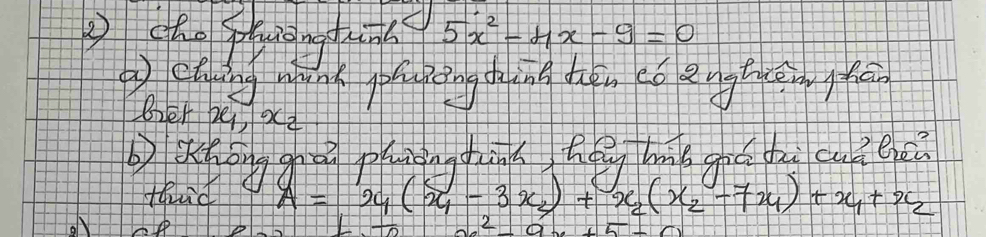 2) Cho phương trình 5x² - 4x - 9 = 0
a) Chứng minh phương trình trên có 2 nghiệm phân
biệt x₁, x₂
b) Không giải phương trình, hãy tính giá trị của biểu
thức A = x₁(x₁ - 3x₂) + x₂(x₂ - 7x₁) + x₁ + x₂
x² - 9x + 5 = 0